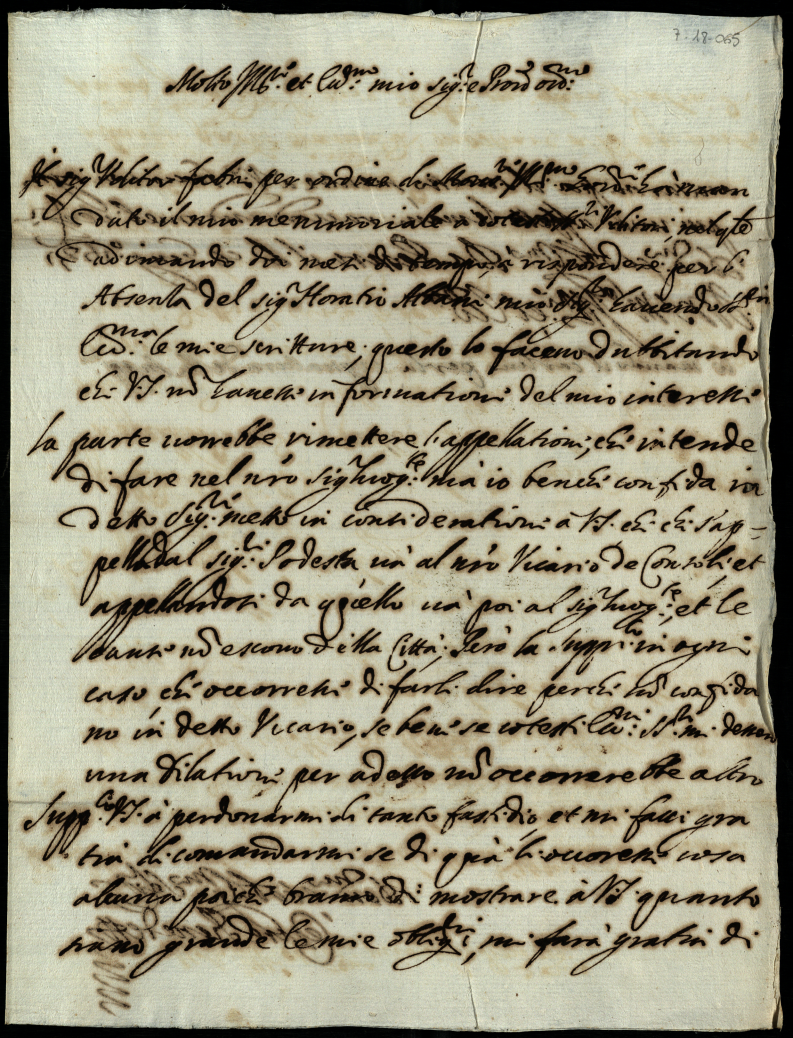 7-18-065
Molto Ill.re et Ecc.mo mio sig.r e Pron oss.mo
Il sig.r Auditor fabri per ordine di
dato il mio memmoriale a Auditori, nel q.le
adimando doi mesi di tempo à rispondere per l'
Absentia del sig.r Horatio Albani mio havendo
Ecc.ma le mie scritture, questo lo facevo dubbitando
che V.S. nõ havesse informatione del mio interesse
la parte vorrebbe rimettere l'appellatione, che intende
di fare nel nro sig.r luog.te mà io benche confida in
detto sig.re metto in consideratione à V.S. che chi s'ap-
pella dal sig.r Podesta và al nro Vicario de Consoli, et
appellandosi da quello và poi al sig.r luog.te, et le
cause nõ escono della Città, Però la supp.co in ogni
caso che occorresse di farli dire perche nõ confida
no in detto Vicario, se bene se cotesti Ecc.mi SS.ri mi dessero
una dilatione per adesso nõ occorrerebbe altro
Supp.co V.S. à perdonarmi di tanto fastidio, et mi facci gra
tia di comandarmi se di quà li occoresse cosa
alcuna poiche bramo di mostrare à V.S. quanto
siano grande le mie oblig.ni, mi farà gratia di